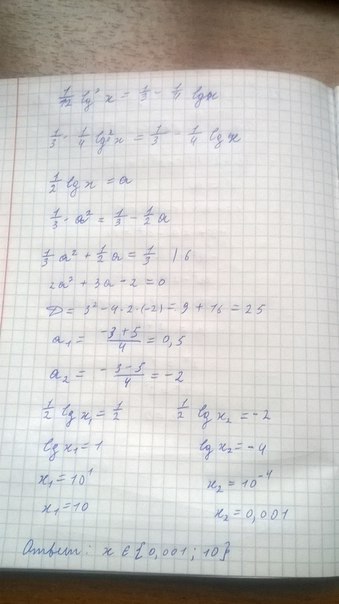 1/12 lg² x = 1/3 - 1/4 lg x
1/3 · 1/4 lg² x = 1/3 - 1/4 lg x
1/2 lg x = a
1/3 · a² = 1/3 - 1/2 a
1/3 a² + 1/2 a = 1/3 | 6
2a² + 3a - 2 = 0
D = 3² - 4·2·(-2) = 9 + 16 = 25
a₁ = (-3+5)/4 = 0,5
a₂ = (-3-5)/4 = -2
1/2 lg x₁ = 1/2    1/2 lg x₂ = -2
lg x₁ = 1    lg x₂ = -4
x₁ = 10¹    x₂ = 10⁻⁴
x₁ = 10    x₂ = 0,001
Ответ: x ∈ {0,001; 10}